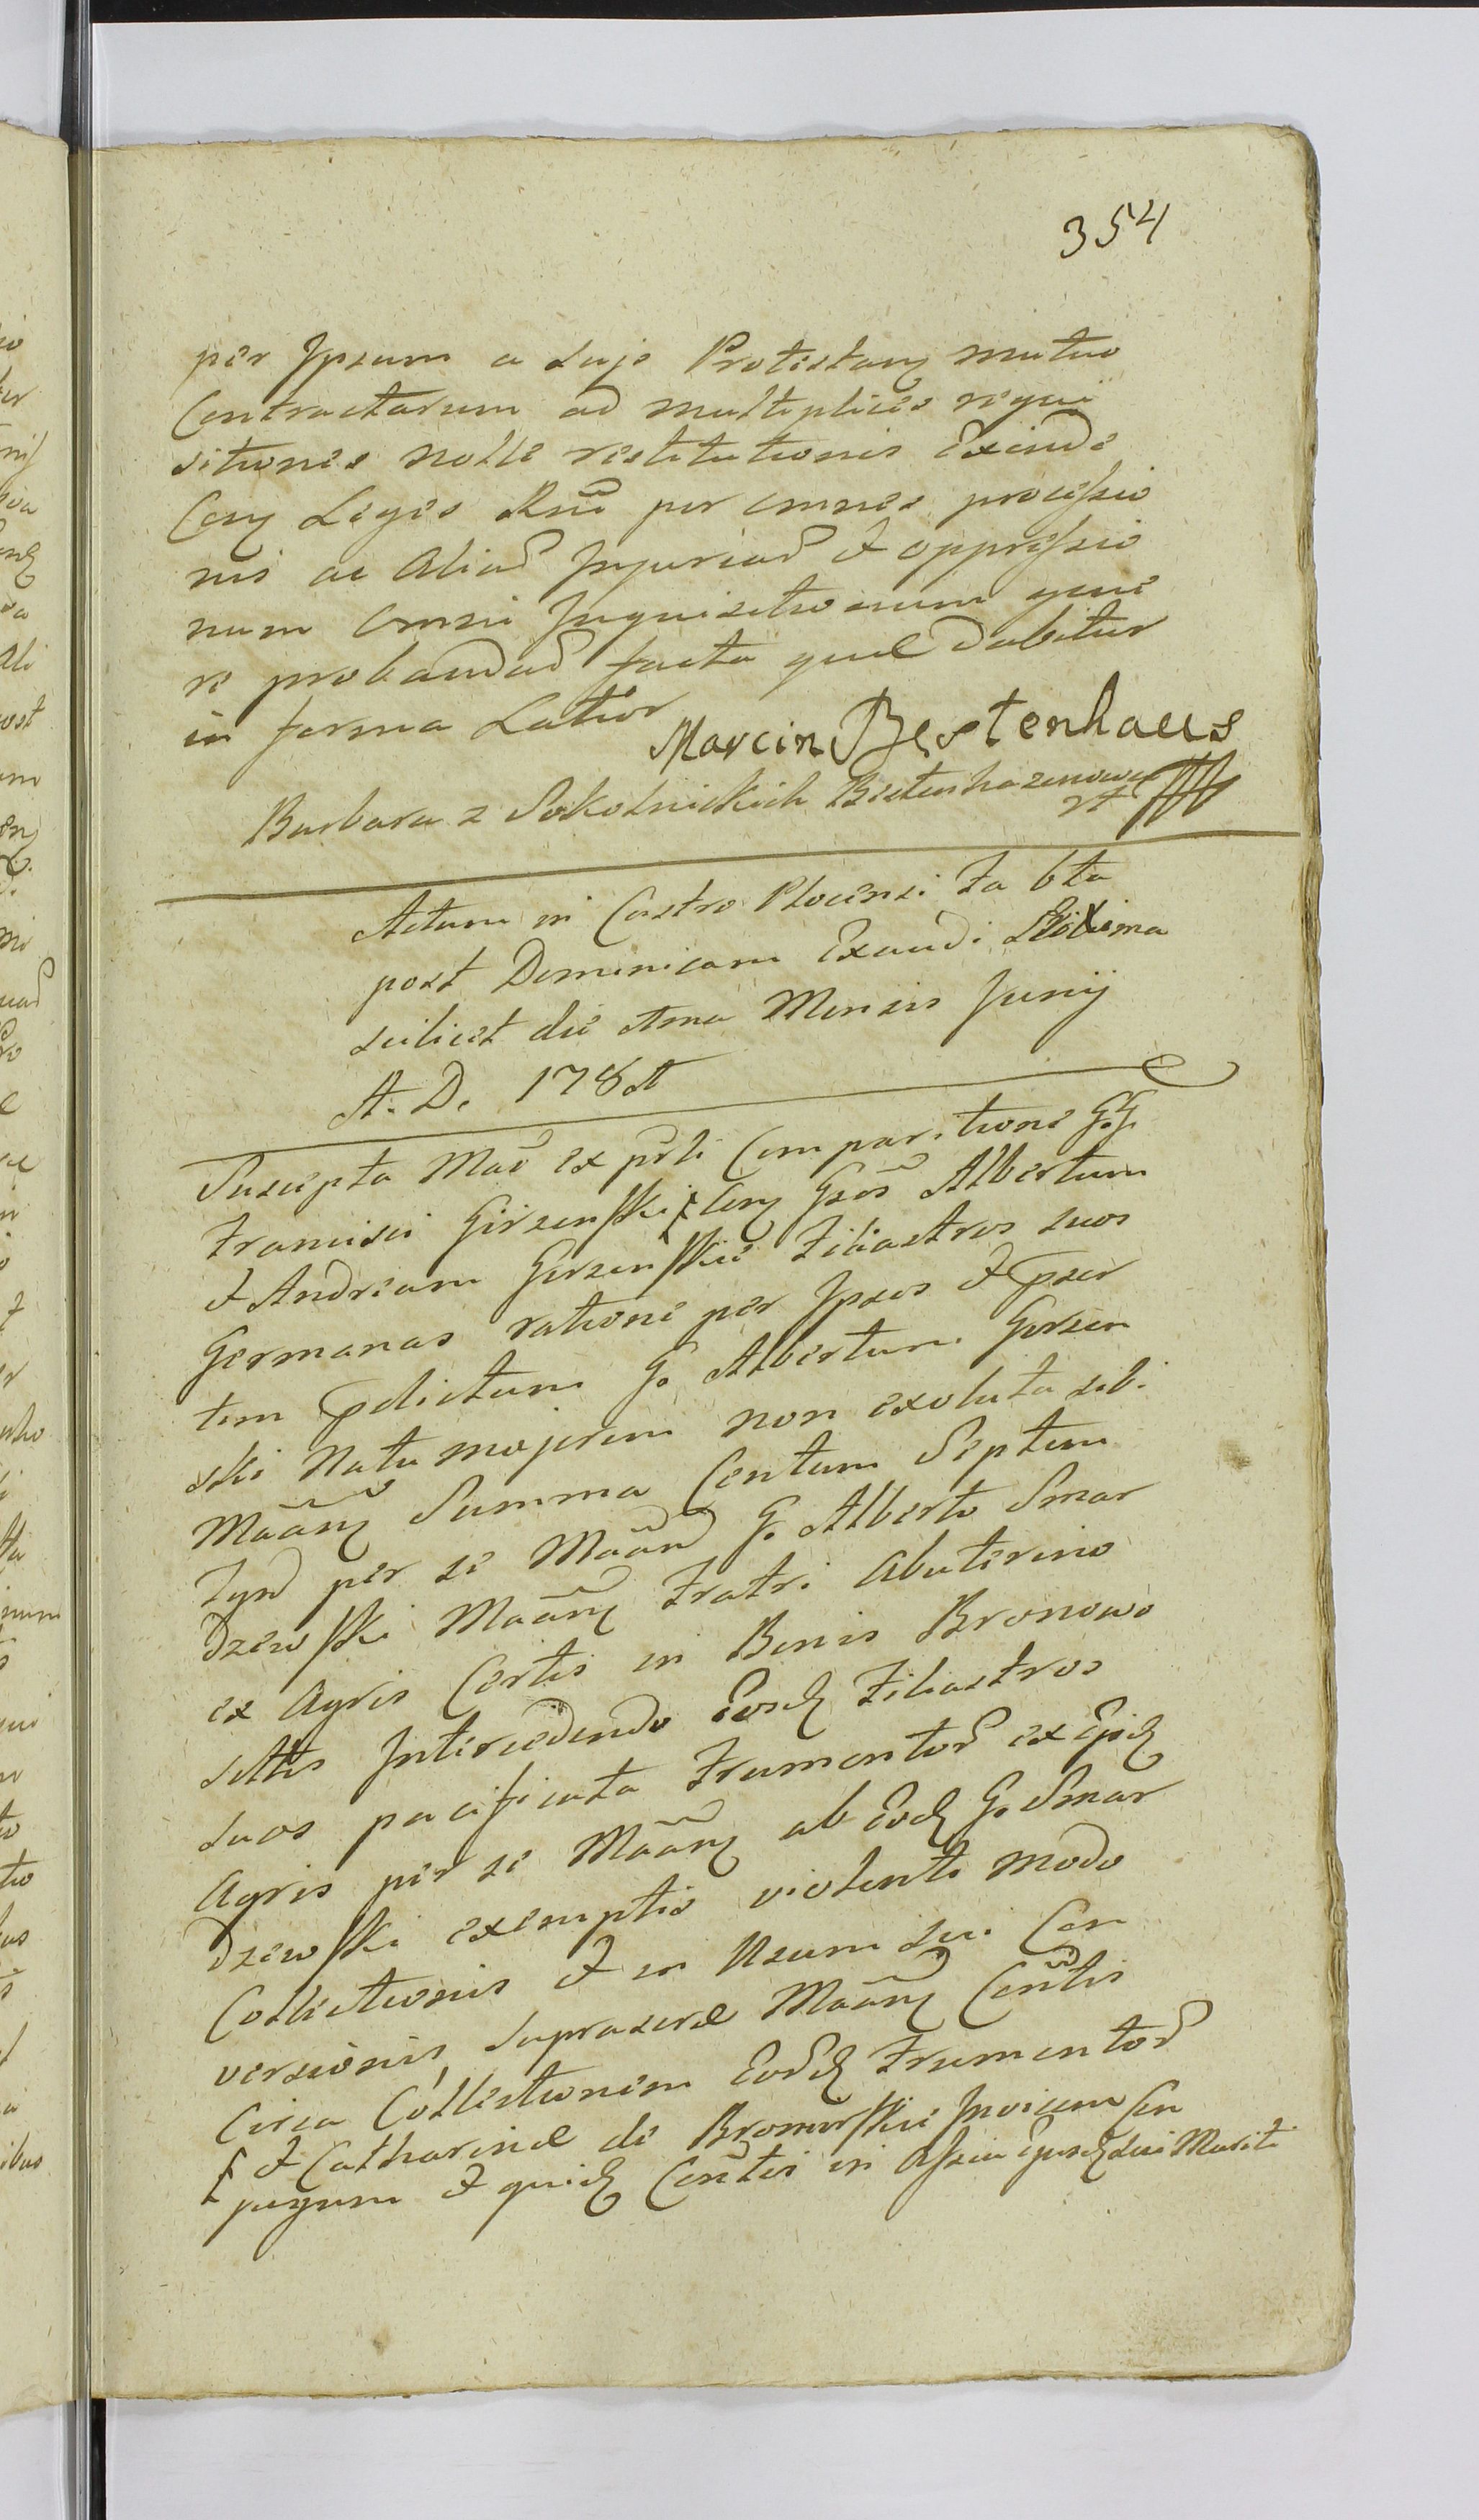 354
per Ipsum a Suje Protestanz mutuo
Contractarum ad multiplices requi
sitiones nolle restitutionis Exinde
Conz Leges Rñi per omnes processio
nis ac Aliaŕ Injuriaŕ & oppressio
num omni Inquisitionum gene
re probandaŕ facta quæ dabitur
in forma Latior
Marcin Bestenhaus
Barbara z Sokolnickich Bistenhazenowa
Actum in Castro Plocensi fa 6ta
post Dominicam Exaudi
scilicet die 4ma Mensis Junij
A. D. 1784
Suscepta Maõ ex prti Comparitione G.G.
Francisci Girzenski ⁋ Conz Gsõs Albertum
& Andream Girzenskie Filiastros suos
Germanos ratione per Ipsos & pser
tim pdictum G. Albertum Gerzen
ski Natu majorem non exoluta sibi
Mãanz Summa Centum Septem
Fynŕ per se Mãanŕ G. Alberto Smar
dzewski Mãanz Fratri Abuterino
ex Agris Certis in Bonis Bronowo
sittis Intercedendo Eosdz Filiastros
suos pacificata Frumentoŕ ex Ijsdz
Agris per se Mãanz ab Eodz G. Smar
dzewski exemptis violento modo
Collectionis & in Usum sui Con
versionis supraseræ Mãanz Conŧtis
Circa Collectionem Eorŕdz Frumentoŕ
⁋ & Catharinæ de Bronowskie Invicem Con
jugum & quidz Conŧtis in Assia Ejusdz sui Mariti